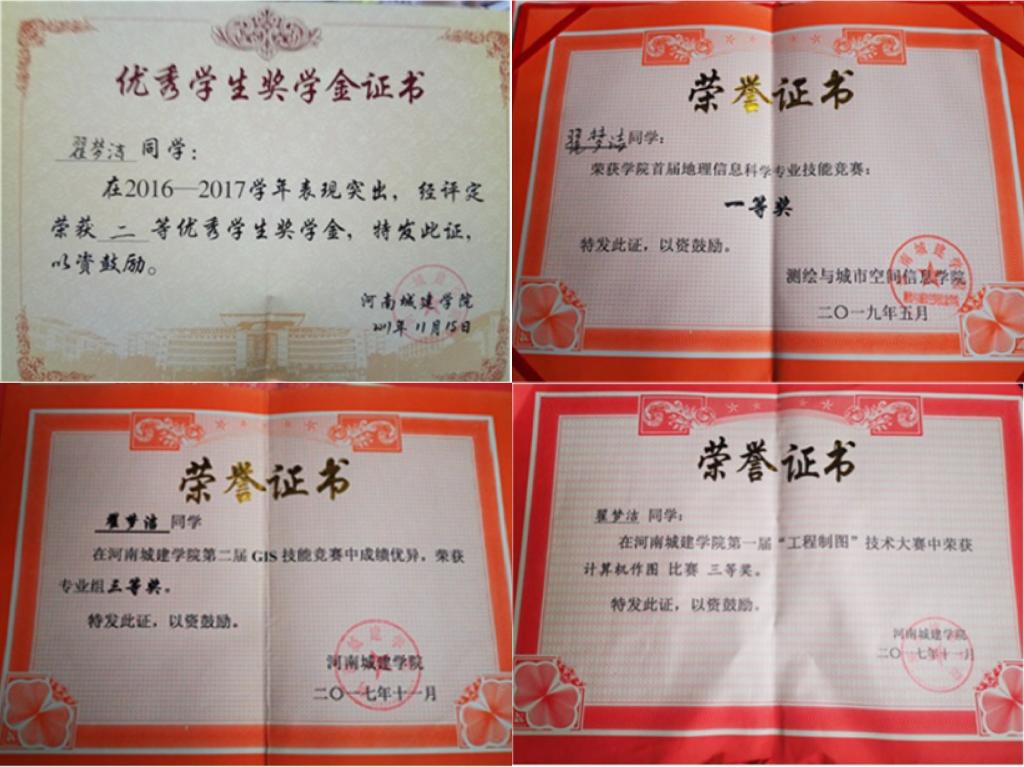 优秀学生奖学金证书
翟梦洁 同学：
在2016—2017学年表现突出，经评定
荣获 二 等优秀学生奖学金，特发此证，
以资鼓励。
河南城建学院
2017年 11月15日
荣誉证书
翟梦洁同学：
荣获学院首届地理信息科学专业技能竞赛：
一等奖
特发此证，以资鼓励。
测绘与城市空间信息学院
二〇一九年五月
荣誉证书
翟梦洁 同学
在河南城建学院第二届 GIS 技能竞赛中成绩优异，荣获
专业组三等奖。
特发此证，以资鼓励。
河南城建学院
二〇一七年十一月
荣誉证书
翟梦洁 同学：
在河南城建学院第一届“工程制图”技术大赛中荣获
计算机作图 比赛 三等奖。
特发此证，以资鼓励。
河南城建学院
二〇一七年十一月